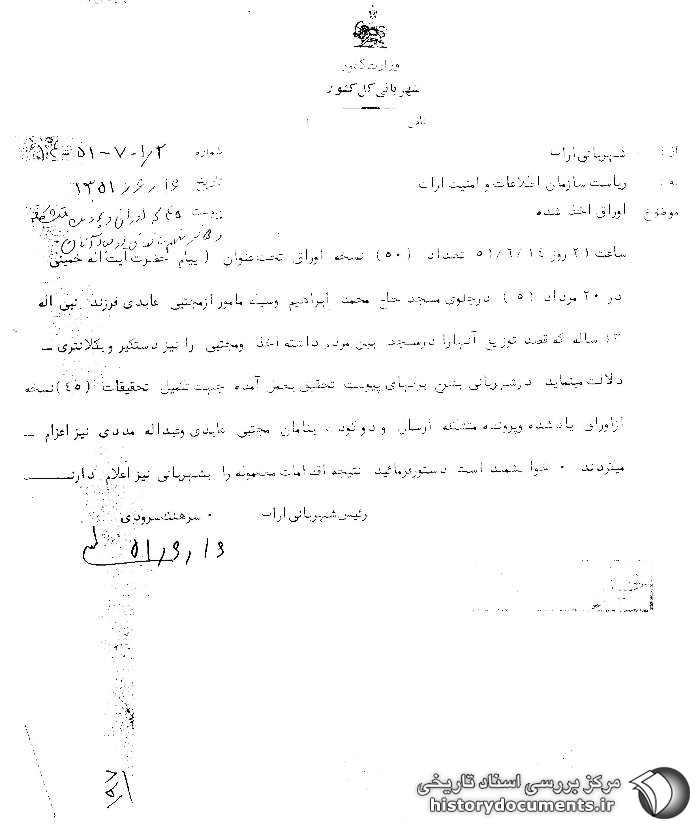 وزارت کشور
شهربانی کل کشور
تلفن
از : شهربانی اراک
شماره ۵۱-۷-۱/۲
به : ریاست سازمان اطلاعات و امنیت اراک
تاریخ ۱۳۵۱/۶/۱۶
موضوع : اوراق اخذ شده
پیوست ۴۵
ساعت ۲۱ روز ۵۱/۶/۱۴ تعداد (۵۰) نسخه اوراق تحت عنوان (پیام حضرت آیت اله خمینی
در ۲۰ مرداد ۵۱) در جلوی مسجد حاج محمد ابراهیم وسیله مامور از مجتبی عابدی فرزند نبی اله
۱۳ ساله که قصد توزیع آنها را در مسجد بین مردم داشته اخذ و مجتبی را نیز دستگیر و بکلانتری -
دلالت مینماید در شهربانی بشرح برگهای پیوست تحقیق بعمل آمده جهت تکمیل تحقیقات (۴۵) نسخه
از اوراق یاد شده و پرونده متشکله ارسال و دو کودک بنامان مجتبی عابدی و یداله مددی نیز اعزام -
میگردند . خواهشمند است دستور فرمائید نتیجه اقدامات معموله را بشهربانی نیز اعلام دارند
رئیس شهربانی اراک . سرهنگ سرودی
۵۱/۶/۱۶
مرکز بررسی اسناد تاریخی
historydocuments.ir